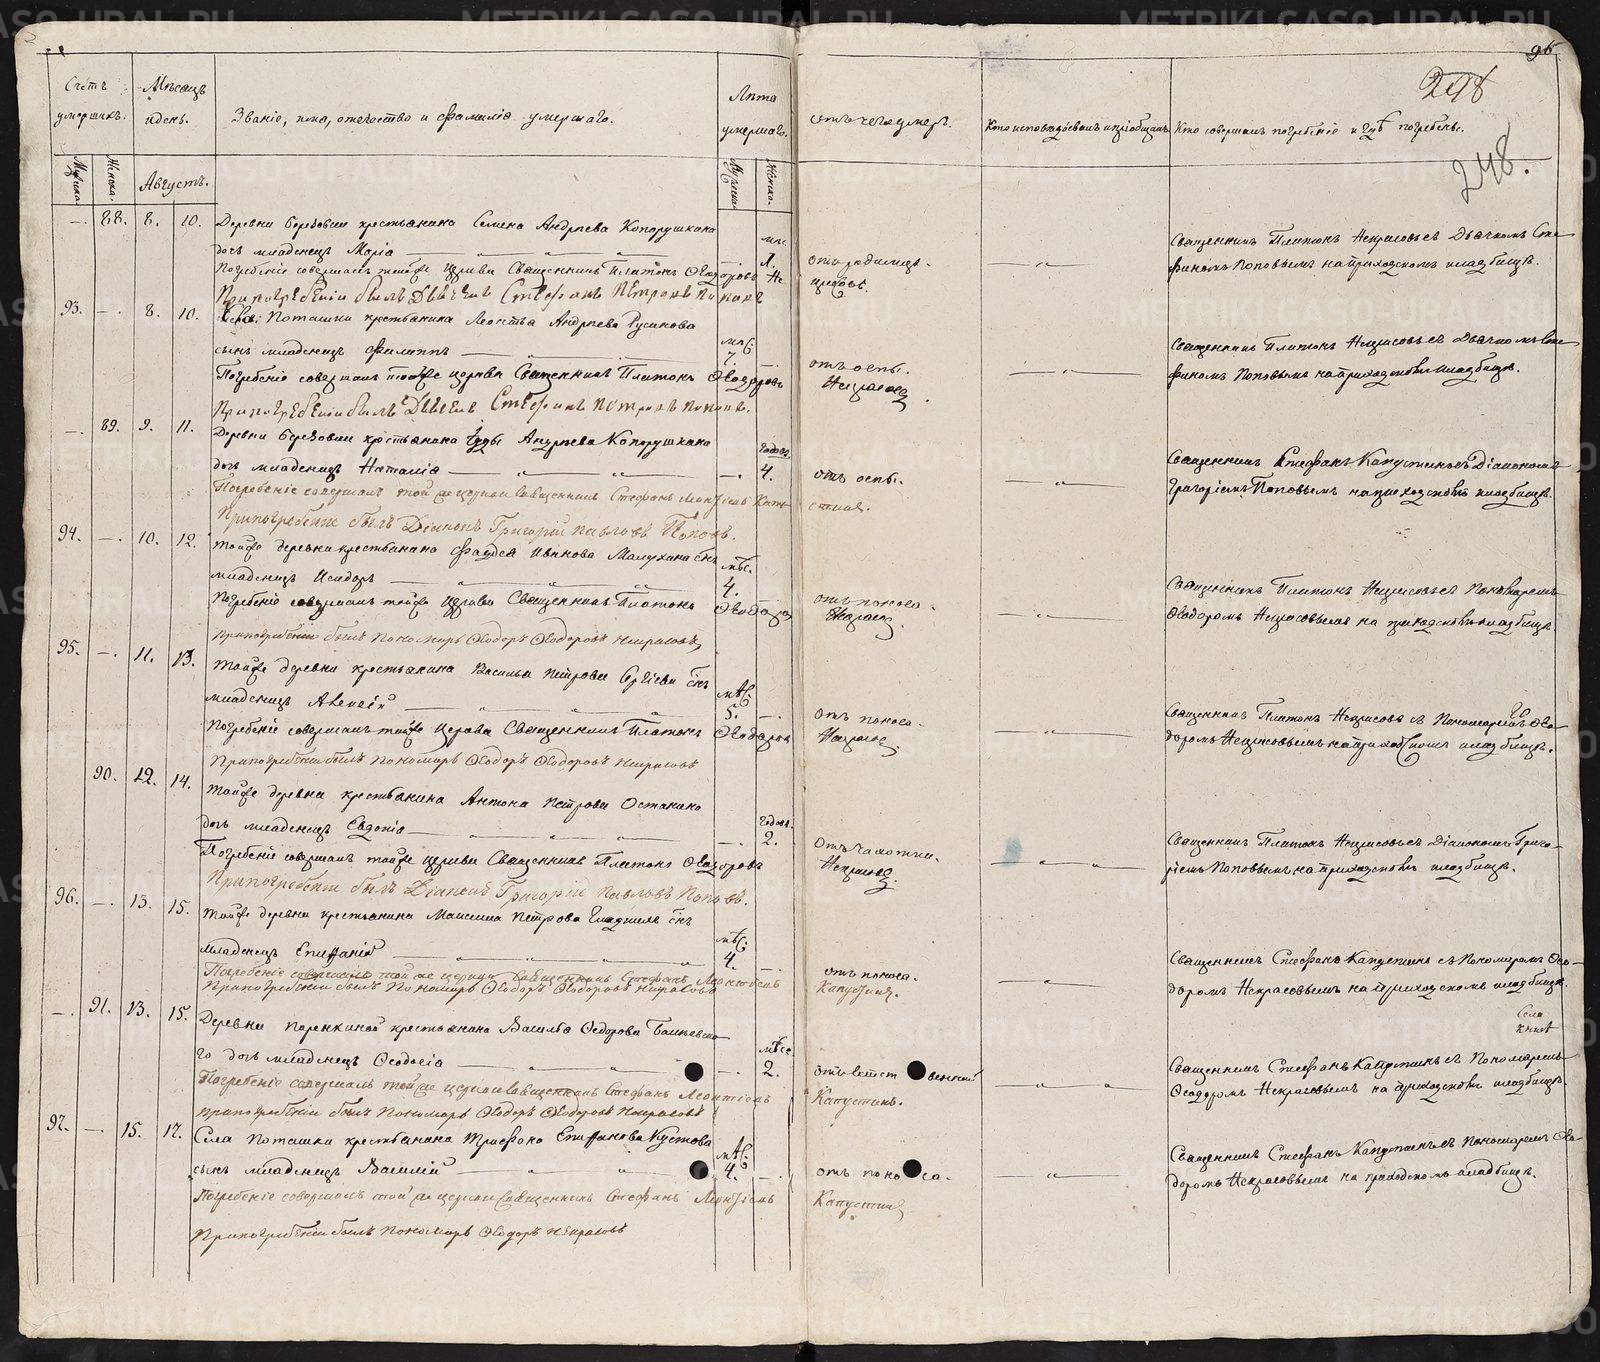 96
248
248.
Счетъ умершихъ.
Мѣсяцъ и день.
Званіе, имя, отечество и фамилія умершаго.
Лѣта умершаго.
отъ чего умеръ.
Кто исповѣдовалъ и пріобщалъ
Кто совершалъ погребеніе и гдѣ погребены.
Августъ.
—. 88. 8. 10. Деревни Березовки крестьянина Семена Андреева Копорушкина
дочь младенецъ Марія
1.
отъ родимца.
Погребеніе совершалъ тойже церкви Священникъ Платонъ Ѳеодоровъ Не
красовъ.
При погребеніи былъ Дьячекъ Стефанъ Петровъ Поповъ
Священникъ Платонъ Некрасовъ съ Дьячкомъ Сте
фаномъ Поповымъ на приходскомъ кладбищѣ.
93. —. 8. 10. Села Поташки крестьянина Леонтья Андреева Русинова
сынъ младенецъ Филиппъ
мѣс. 7
отъ оспы.
Погребеніе совершалъ тойже церкви Священникъ Платонъ Ѳеодоровъ
Некрасовъ
При погребеніи былъ Дьячекъ Стефанъ Петровъ Поповъ.
Священникъ Платонъ Некрасовъ съ Дьячкомъ Сте
фаномъ Поповымъ на приходскомъ кладбищѣ.
—. 89. 9. 11. Деревни Березовки крестьянина Андреева Копорушкина
дочь младенецъ Наталія
годовъ. 4.
отъ оспы.
Погребеніе совершалъ той же церкви Священникъ Стефанъ Леонтіевъ Капу
стинъ.
При погребеніи былъ Діаконъ Григорій Павловъ Поповъ.
Священникъ Стефанъ Капустинъ съ Діакономъ
Григоріемъ Поповымъ на приходскомъ кладбищѣ.
94. —. 10. 12. Тойже деревни крестьянина Фаддея Иванова Малухина сынъ
младенецъ Исидоръ
мѣс. 4.
отъ поноса.
Погребеніе совершалъ тойже церкви Священникъ Платонъ Ѳеодоровъ
Некрасовъ
При погребеніи былъ Пономарь Ѳеодоръ Ѳеодоровъ Некрасовъ
Священникъ Платонъ Некрасовъ съ Пономаремъ
Ѳеодоромъ Некрасовымъ на приходскомъ кладбищѣ.
95. —. 11. 13. Тойже деревни крестьянина Василья Петрова Сергіева сынъ
младенецъ Алексій
мѣс. 5. —.
отъ поноса.
Погребеніе совершалъ тойже церкви Священникъ Платонъ Ѳеодоровъ
Некрасовъ.
При погребеніи былъ Пономарь Ѳеодоръ Ѳеодоровъ Некрасовъ
Священникъ Платонъ Некрасовъ съ Пономаремъ Ѳео
доромъ Некрасовымъ на приходскомъ кладбищѣ.
90. 12. 14. Тойже деревни крестьянина Антона Петрова Останина
дочь младенецъ Евдокія
годовъ. —. 2.
отъ чахотки.
Погребеніе совершалъ тойже церкви Священникъ Платонъ Ѳеодоровъ
Некрасовъ.
При погребеніи былъ Діаконъ Григорій Павловъ Поповъ.
Священникъ Платонъ Некрасовъ съ Діакономъ Григо-
ріемъ Поповымъ на приходскомъ кладбищѣ.
96. —. 13. 15. Тойже деревни крестьянина Максима Петрова сынъ
младенецъ Епифаній
мѣс. 4. —.
отъ поноса.
Погребеніе совершалъ той же церкви Священникъ Стефанъ Леонтіевъ
Капустинъ.
При погребеніи былъ Пономарь Ѳеодоръ Ѳеодоровъ Некрасовъ
Священникъ Стефанъ Капустинъ съ Пономаремъ Ѳео-
доромъ Некрасовымъ на приходскомъ кладбищѣ.
—. 91. 13. 15. Деревни крестьянина Василья Ѳедорова
го дочь младенецъ Ѳеодосія
мѣсе. —. 2.
Погребеніе совершалъ той же церкви Священникъ Стефанъ Леонтіевъ
Капустинъ.
При погребеніи былъ Пономарь Ѳеодоръ Ѳеодоровъ Некрасовъ
Священникъ Стефанъ Капустинъ съ Пономаремъ
Ѳеодоромъ Некрасовымъ на приходскомъ кладбищѣ.
97. —. 15. 17. Села Поташки крестьянина Трифона Епифанова Кустова
сынъ младенецъ Василій
мѣс. 4. —.
отъ поноса.
Погребеніе совершалъ той же церкви Священникъ Стефанъ Леонтіевъ
Капустинъ
При погребеніи былъ Пономарь Ѳеодоръ Некрасовъ
Священникъ Стефанъ Капустинъ съ Пономаремъ Ѳео-
доромъ Некрасовымъ на приходскомъ кладбищѣ.
METRIKI.GASO-URAL.RU